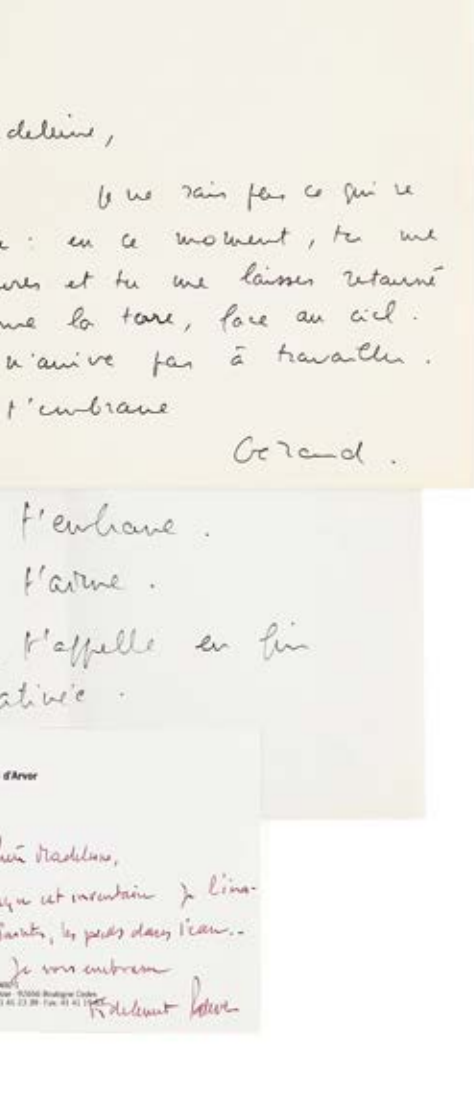 deleine,
Je ne sais pas ce qui se
e : en ce moment, tu me
ures et tu me laisses retourné
me la terre, face au ciel.
n'arrive pas à travailler.
t'embrasse
Gérard.
t'embrasse.
t'aime.
t'appelle en fin
atinée.
d'Arvor
Madeleine,
cet inventaire je
les pieds dans l'eau..
Je vous embrasse
92656 Boulogne Cedex